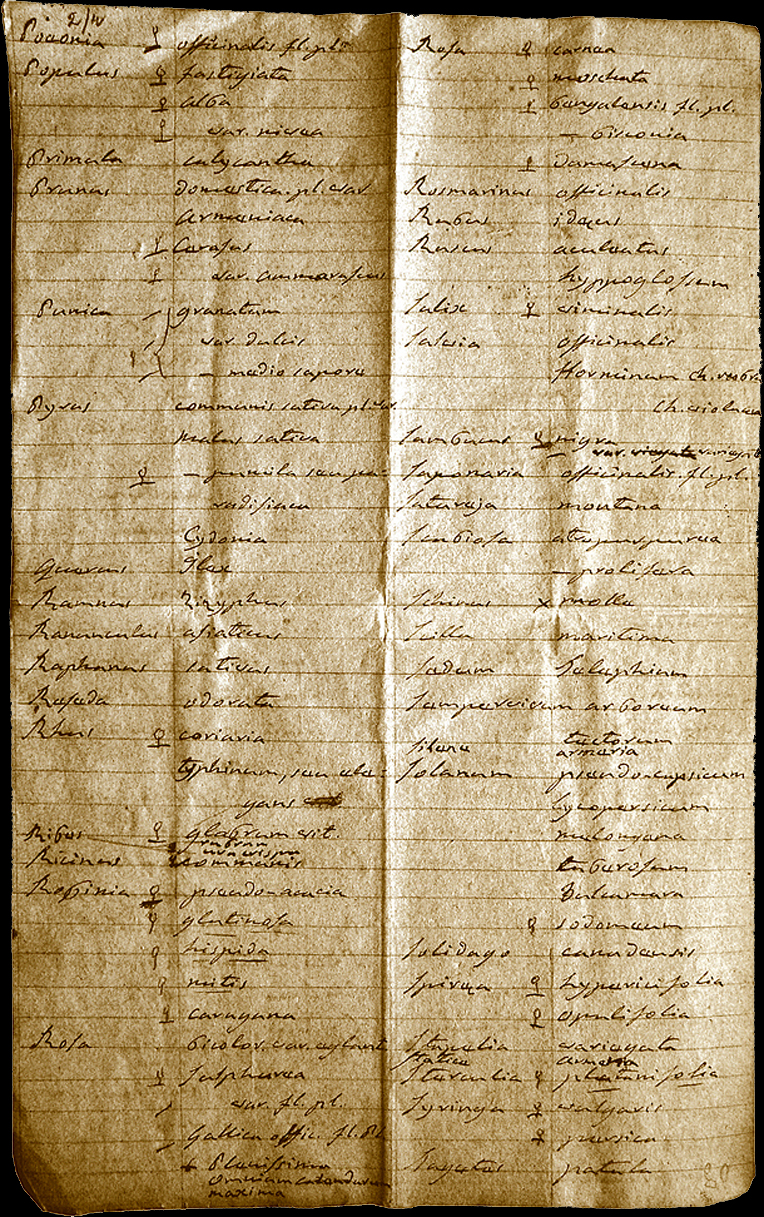 2/4
Poeonia ♀ officinalis fl. plo
Populus ♀ fastigiata
♀ alba
♀ var. nivea
Primula calycantha
Prunus domestica. pl. var
armeniaca
♀ Cerasus
♀ var. ammarascus
Punica granatum
var. dulcis
— medio sapore
Pyrus communis sativa pl. var.
malus sativa
♀ — pumila seu pa-
radisiaca
Cydonia
Quercus Ilex
Ramnus Zizyphus
Ranunculus asiaticus
Raphanus sativus
Reseda odorata
Rhus ♀ coriaria
typhinum, seu ele-
gans
Ribes ♀ glabrum est.
rubrum
uva crispa
Ricinus communis
Robinia ♀ pseudo-acacia
♀ glutinosa
♀ hispida
♀ mitis
♀ caragana
Rosa bicolor. var. eglant
♀ sulphurea
var. fl. pl.
Gallica offic. fl. pl
+ Plenissima
omnium catandarum
maxima
Rosa ♀ carnea
♀ moschata
♀ bengalensis fl. pl.
— bisconia
♀ damascena
Rosmarinus officinalis
Rubus idæus
Ruscus aculeatus
hyppoglossum
Salix ♀ viminalis
Salvia officinalis
Horminum ch. rubra
ch. violacea
Sambucus ♀ nigra
— var.
Saponaria officinalis. fl. pl.
Satureja montana
Scabiosa atropurpurea
— prolifera
Schinus × molle
Scilla maritima
Sedum Telephium
Sempervivum arboreum
tectorum
Silene armeria
Solanum pseudo-capsicum
Lycopersicum
melongena
tuberosum
Dulcamara
♀ sodomeum
Solidago canadensis
Spiræa ♀ hypericifolia
♀ opulifolia
Stapelia variegata
Statice armeria
Sterculia ♀ platanifolia
Syringa ♀ vulgaris
♀ persica
Tagetes patula